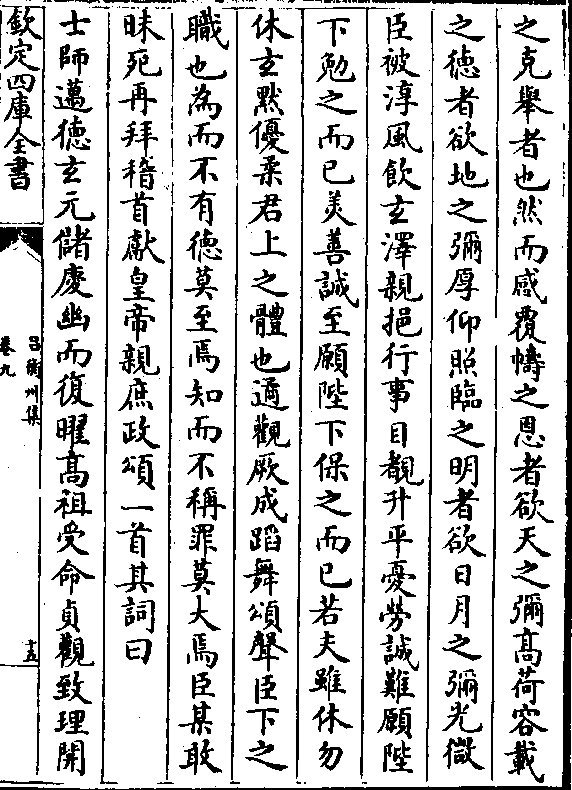 之克舉者也然而感覆幬之恩者欲天之彌髙荷容載
之德者欲地之彌厚仰照臨之明者欲日月之彌光微
臣被淳風飲玄澤親挹行事目覩升平憂勞誠難願陛
下勉之而已美善誠至願陛下保之而已若夫雖休勿
休玄黙優柔君上之體也遹觀厥成蹈舞頌聲臣下之
職也為而不有德莫至焉知而不稱罪莫大焉臣某敢
昧死再拜稽首獻皇帝親庶政頌一首其詞曰
士師邁德玄元儲慶幽而復曜髙祖受命貞觀致理開
欽定四庫全書
吕衡州集
卷九
十五